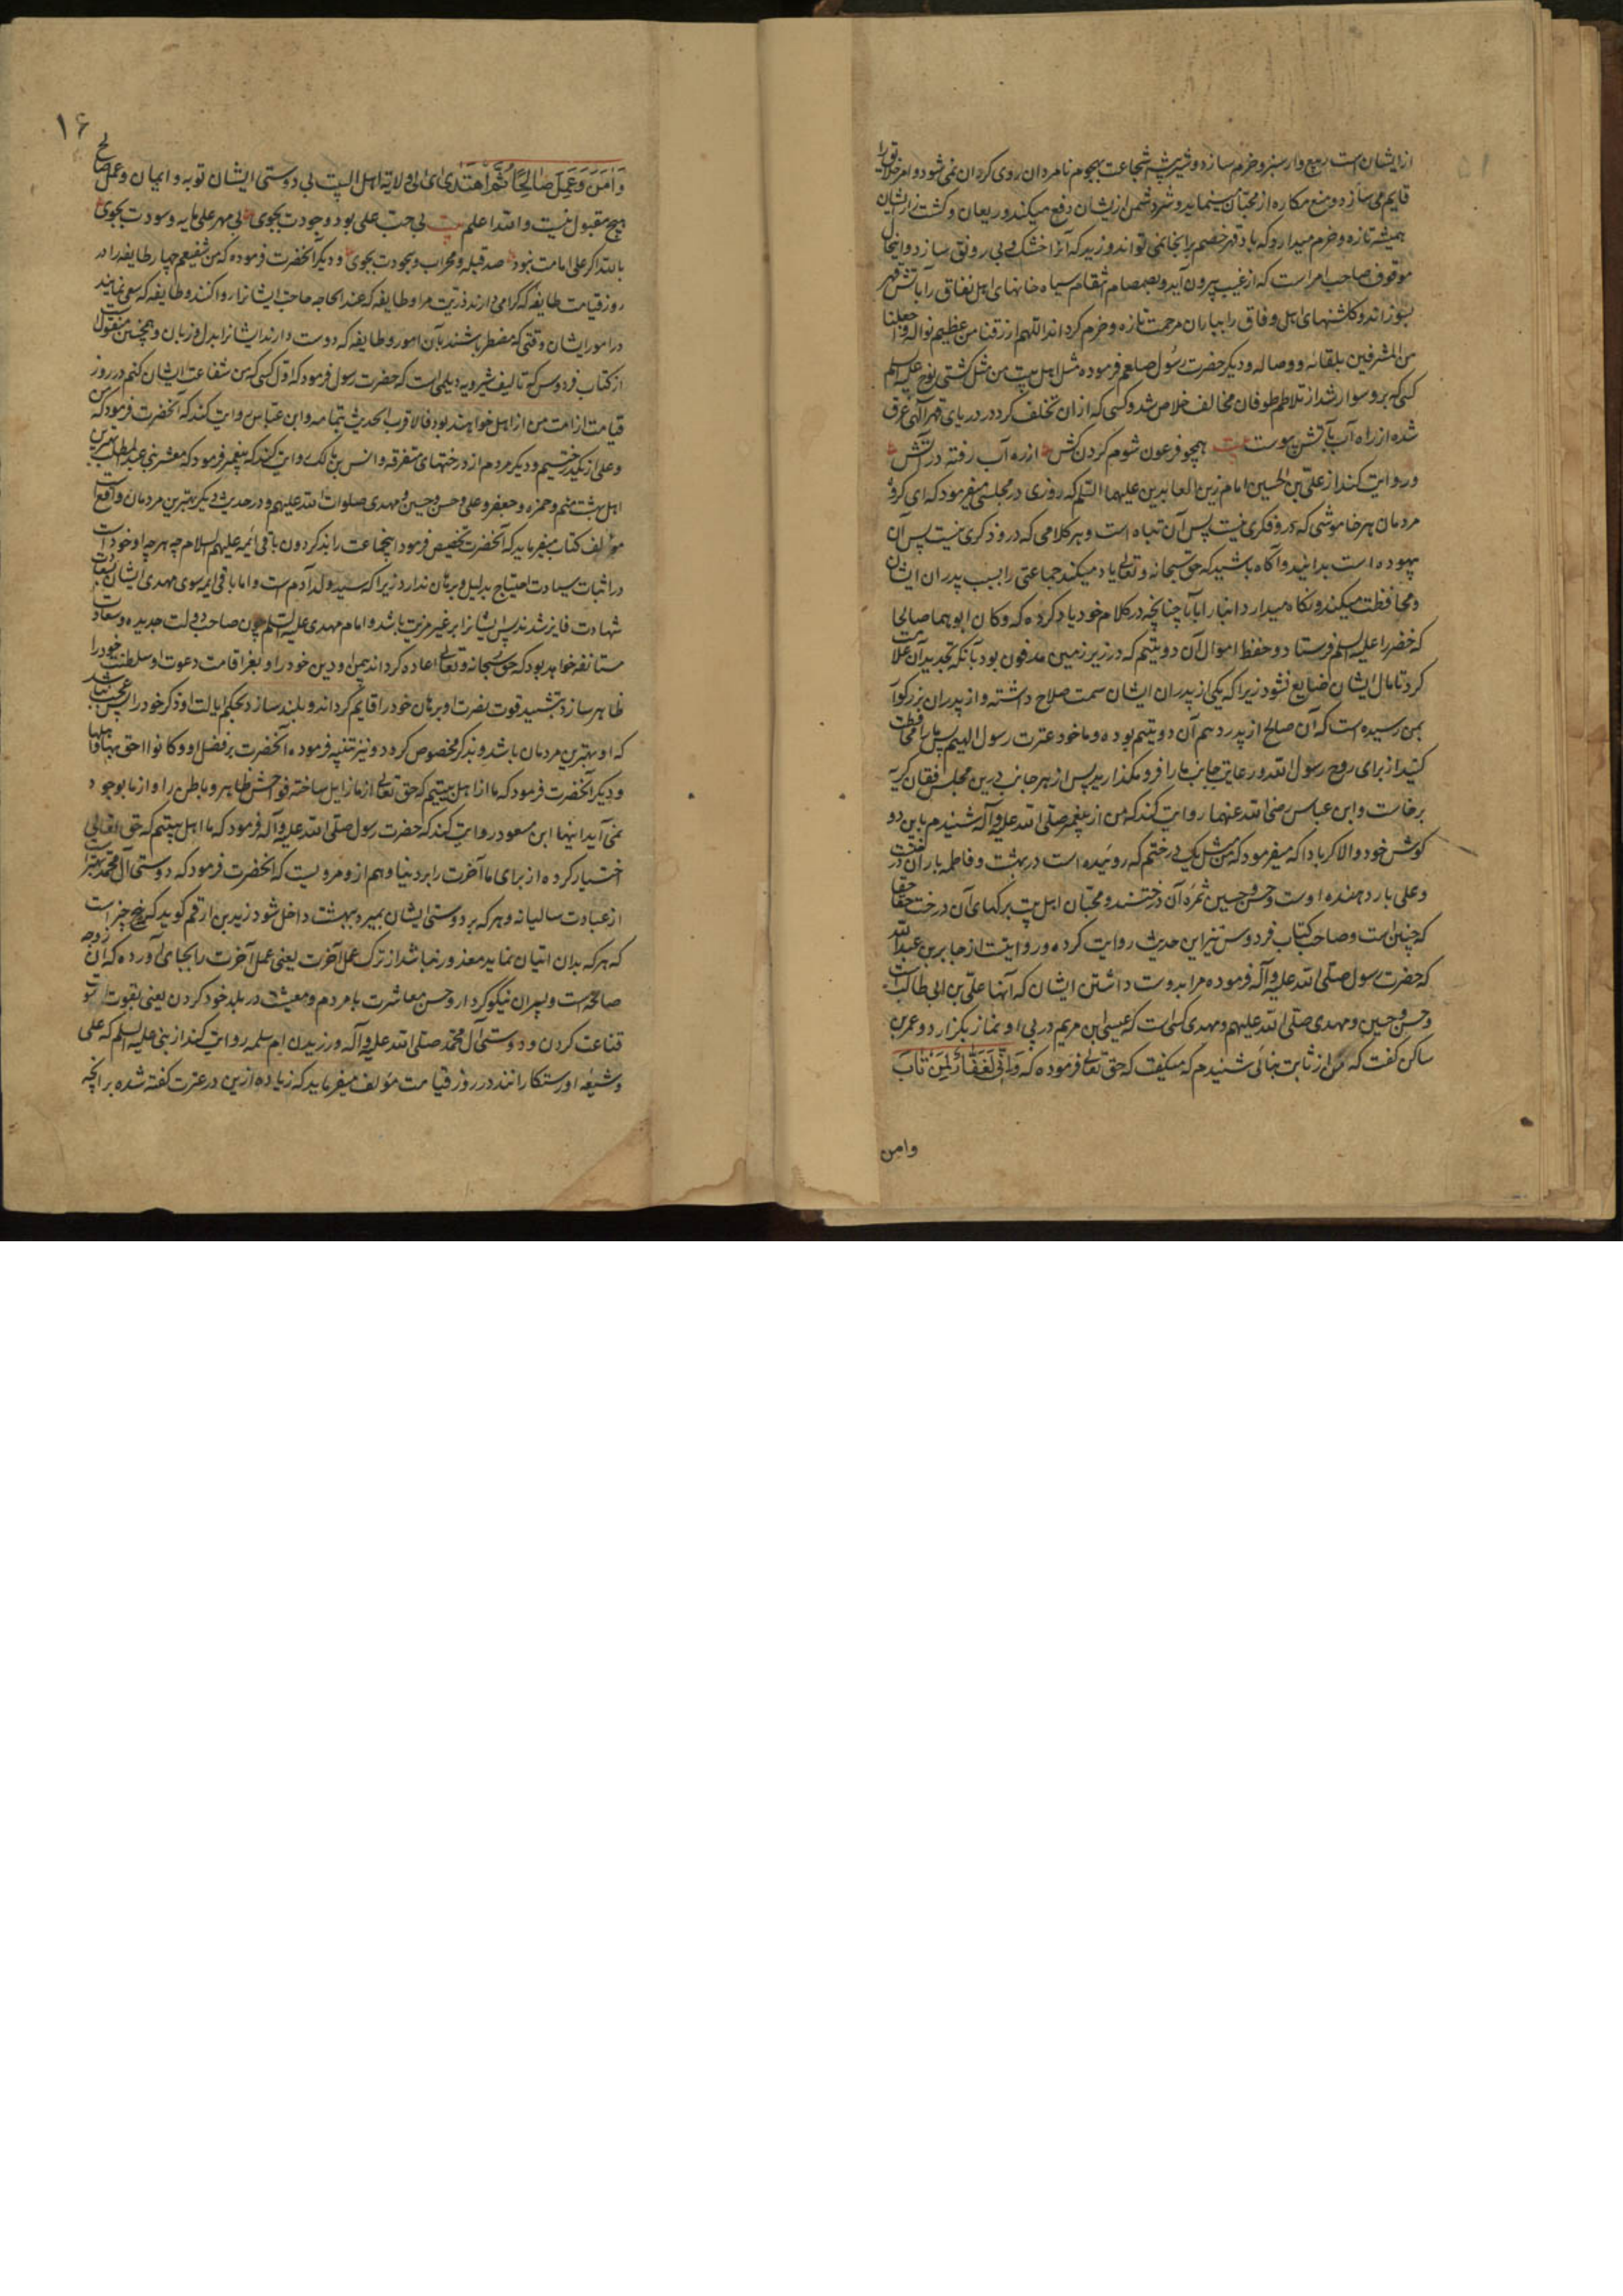 از ایشان است ربیع وار سبز و خرم سازد و شیر بیشه شجاعت بهجوم نامردان روی کردان نمی شود و امر خلافت را
قایم می سازد و منع مکاره از محبان مینماید و شر دشمن از یشان دفع میکند و ریعان و کشت زار یشان
همیشه تازه و خرم میدارد که باد قهر خصم بر انجا نمی تواند وزید که آنرا خشک و بی رونق سازد و اینحال
موقوف صاحب امر است که از غیب بیرون آید و بصمصام انتقام سیاه خانهای اهل نفاق را بآتش قهر
بسوزاند و کلشنهای اهل وفاق را بباران مرحمت تازه و خرم کرداند اللهم ارزقنا من عظیم نواله و اجعلنا
من المشرفین بلقائه و وصاله و دیکر حضرت رسول صلعم فرموده مثل اهل بیت من مثل کشتی نوح علیه السلم
کسی که برو سوار شد از تلاطم طوفان مخالف خلاص شد و کسی که از ان تخلف کرد در دریای قهر آلهی غرق
شده از راه آب بآتش پیوست بیت همچو فرعون شوم کردن کش از ره آب رفته در آتش
و روایت کند از علی بن الحسین امام زین العابدین علیهما السلم که روزی در مجلسی میفرمود که ای کروه
مردمان هر خاموشی که درو فکری نیست پس آن تباه است و هر کلامی که درو ذکری نیست پس آن
بیهوده است بدانید و آکاه باشید که حق سبحانه و تعالی یاد میکند جماعتی را بسبب پدران ایشان
و محافظت میکند و نکاه میدارد ابنا را بآبا چنانچه در کلام خود یاد کرده که و کان ابوهما صالحا
که خضر را علیه السلم فرستاد و حفظ اموال آن دو یتیم که در زیر زمین مدفون بود بآنکه تجدید آن علامت
کرد تا مال ایشان ضایع نشود زیرا که یکی از پدران ایشان سمت صلاح داشته و از پدران بزرکوار
بمن رسیده است که آن صالح از پدر دهم آن دو یتیم بوده و ما خود عترت رسول الله ایم پس ما را محافظت
کنید از برای روح رسول الله و رعایت جانب ما را فرو مکذارید پس از هر جانب درین مجلس افغان کریه
برخاست و ابن عباس رضی الله عنهما روایت کند که من از پیغمبر صلی الله علیه و آله شنیدم باین دو
کوش خود والا کر بادا که میفرمود که من مثل یک درختم که روئیده است در بهشت و فاطمه بار آن درخت
و علی بار دهنده اوست و حسن و حسین ثمره آن درختند و محبان اهل بیت برکهای آن درخت حقا حقا
که چنین است و صاحب کتاب فردوس نیز این حدیث روایت کرده و روایتست از جابر بن عبد الله
که حضرت رسول صلی الله علیه و آله فرموده مرا بدوست داشتن ایشان که آنها علی بن ابی طالب است
و حسن و حسین و مهدی صلی الله علیهم و مهدی کسی است که عیسی ابن مریم در پی او نماز بکزارد و عمر بن
ساکن کفت که من از ثابت بنانی شنیدم که میکفت که حق تعالی فرموده که وَاِنّی لَغَفّارٌ لِمَن تابَ
وامن
۱۶
وَآمَنَ وَعَمِلَ صَالِحًا ثُمَّ اهْتَدَی ای الی ولایة اهل البیت بی دوستی ایشان توبه و ایمان و عمل صالح
هیچ مقبول نیست و الله اعلم بیت بی حب علی بود وجودت بجوی بی مهر علی مایه و سودت بجوی
بالله اکر علی امامت نبود صد قبله و محراب و سجودت بجوی و دیکر آنحضرت فرموده که من شفیعم چهار طایفه را در
روز قیامت طایفه که کرامی دارند ذریت مرا و طایفه که عند الحاجه حاجت ایشانرا روا کنند و طایفه که سعی نمایند
در امور ایشان وقتی که مضطر باشند بآن امور و طایفه که دوست دارند ایشانرا بدل و زبان و همچنین منقولست
از کتاب فردوس که تالیف شیرویه دیلمی است که حضرت رسول فرمود که اول کسی که من شفاعت ایشان کنم در روز
قیامت از امت من از اهل خواهند بود فالاقرب الحدیث بتمامه و ابن عباس روایت کند که آنحضرت فرمود که من
و علی از یک درختیم و دیکر مردم از درختهای متفرقه و انس بن مالک روایت کند که پیغمبر فرمود که معشر بنی عبد المطلب بهترین
اهل بهشت منم و حمزه و جعفر و علی و حسن و حسین و مهدی صلوات الله علیهم و در حدیث دیکر بهترین مردمان واقع است
مؤلف کتاب میفرماید که آنحضرت تخصیص فرمود اینجماعت را بذکر دون باقی ائمه علیهم السلام چه هر چه او خود است
در اثبات سیادت احتیاج بدلیل و برهان ندارد زیرا که سید ولد آدم است و اما باقی ایمه سوی مهدی ایشان بسعادت
شهادت فایز شدند پس ایشانرا بر غیر مزیت باشد و امام مهدی علیه السلم چون صاحب دولت جدیده و سعادت
مستانفه خواهد بود که حق سبحانه و تعالی اعاده کرداند بمن او دین خود را و بعز اقامت دعوت او سلطنت خود را
ظاهر سازد و بتشیید قوت نصرت او برهان خود را قایم کرداند و بلند سازد بحکم ایالت او ذکر خود را پس عجب نباشد
که او بهترین مردمان باشد و بذکر مخصوص کردد و نیز تنبیه فرموده آنحضرت بر فضل او و کانوا احق بها و اهلها
و دیکر آنحضرت فرمود که ما از اهل بیتیم که حق تعالی از ما زایل ساخته فواحش ظاهر و باطن را و از ما بوجود
نمی آید اینها ابن مسعود روایت کند که حضرت رسول صلی الله علیه و آله فرمود که ما اهل بیتیم که حق تعالی
اختیار کرده از برای ما آخرت را بر دنیا و هم ازو مرویست که آنحضرت فرمود که دوستی آل محمد بهتر است
از عبادت سالیانه و هر که بر دوستی ایشان بمیرد ببهشت داخل شود زید بن ارقم کوید که پنج چیز است
که هر که بدان اتیان نماید معذور نباشد از ترک عمل آخرت یعنی عمل آخرت را بجای آورده که آن زوجه
صالحه است و پسران نیکو کردار و حسن معاشرت با مردم و معیشت در بلد خود کردن یعنی بقوت
قناعت کردن و دوستی آل محمد صلی الله علیه و آله ورزیدن ام سلمه روایت کند از نبی علیه السلم که علی
و شیعه او رستکارانند در روز قیامت مؤلف میفرماید که زیاده ازین در عترت کفته شده بر انچه